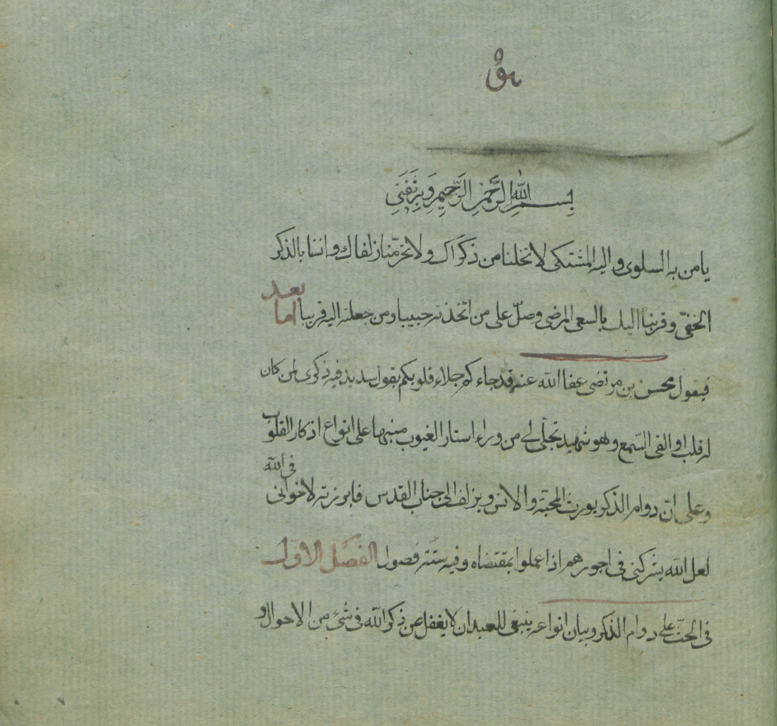 هو
بسم الله الرحمن الرحيم وبه ثقتي
يا من به السلوى واليه المشتكى لا تخلنا من ذكراك ولا تحرمنا زلفاك وانسنا بالذكر
الخفي وقربنا اليك بالسعى المرضي وصل على من اتخذته حبيبا ومن جعلته اليه قريبا اما بعد
فيقول محسن بن مرتضى عفا الله عنه قد جاءكم جلاء قلوبكم بقول سديد فيه ذكرى لمن كان
له قلب او القى السمع وهو شهيد تجلى لي من وراء استار الغيوب منبها على انواع اذكار القلوب
وعلى ان دوام الذكر يورث المحبة والانس ويزلف الى جناب القدس فابرزته لاخواني في الله
لعل الله يشركني في اجورهم اذا عملوا بمقتضاه وفيه ستة فصول الفصل الاول
في الحث على دوام الذكر وبيان انواعه ينبغي للعبد ان لا يغفل عن ذكر الله في شئ من الاحوال و